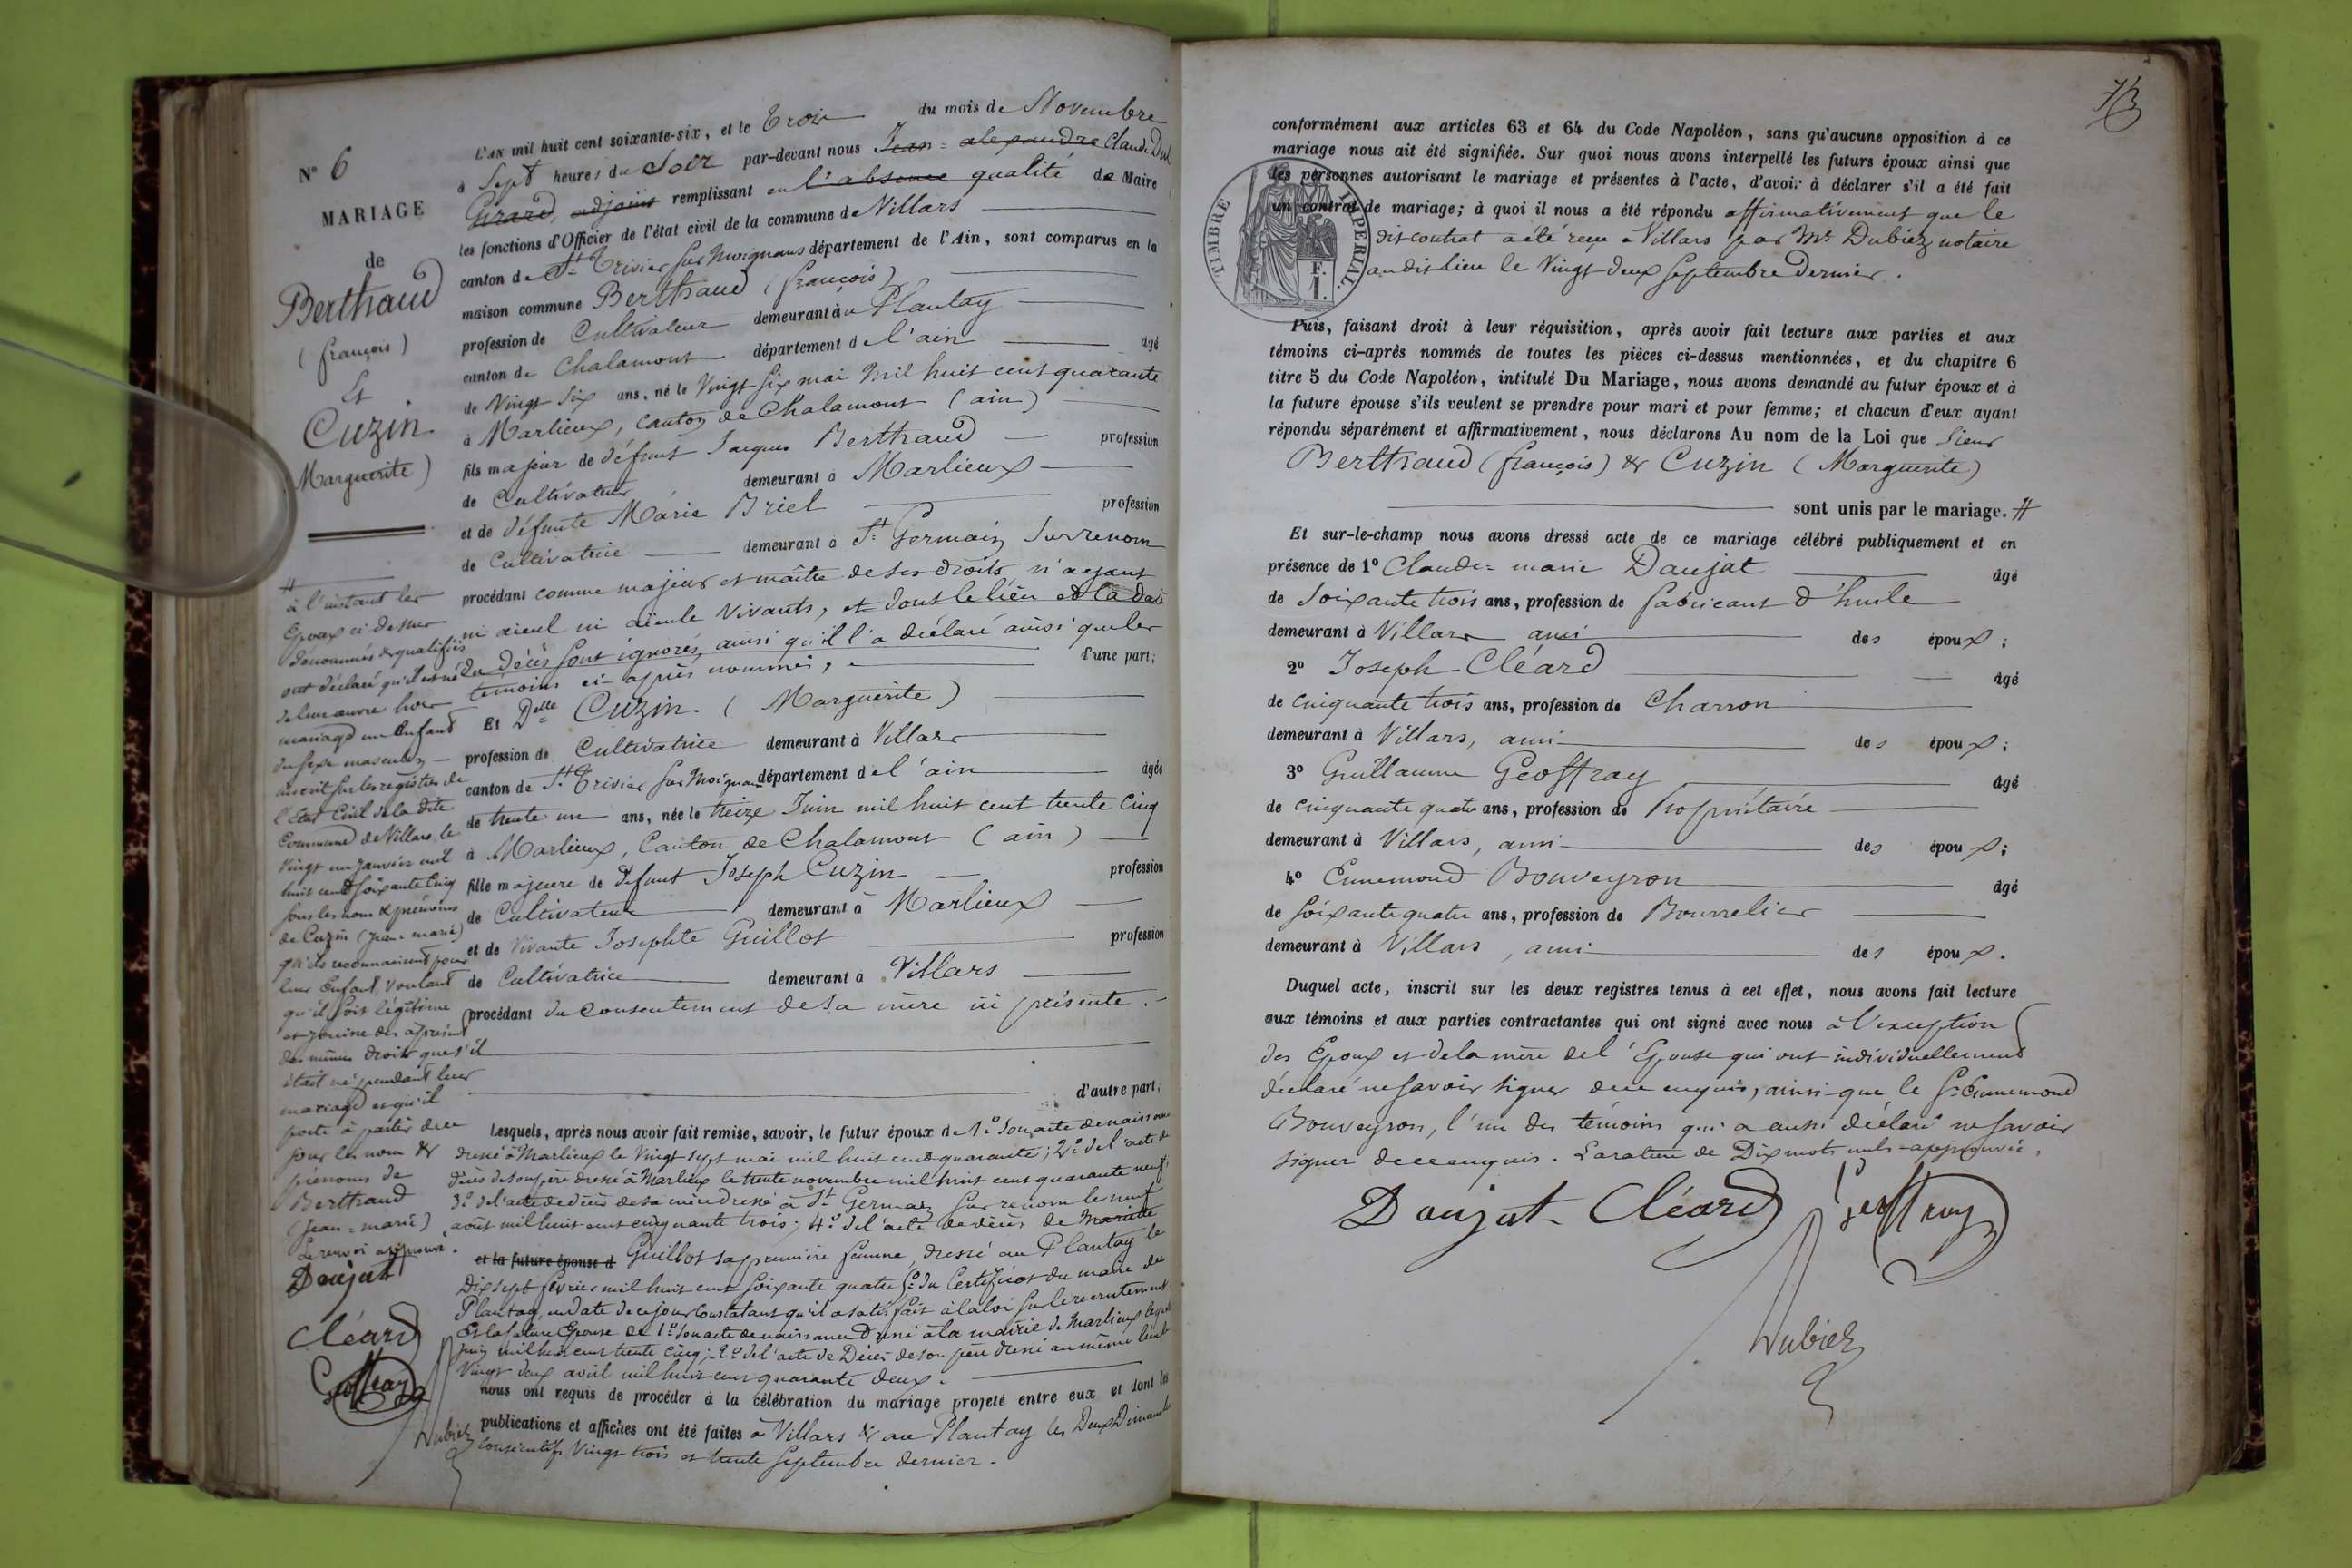 N° 6
MARIAGE
de
Berthaud
(françois)
Et
Cuzin
Marguerite)
L'AN mil huit cent soixante-six, et le Trois du mois de Novembre
à Sept heures du Soir par-devant nous Jean = alexandre Claude Dub
Girard, adjoint remplissant en l'absence qualité de Maire
les fonctions d'Officier de l'état civil de la commune de Villars
canton de St Trivier sur Moignans département de l'Ain, sont comparus en la
maison commune Berthaud (françois)
profession de Cultivateur demeurant à u Plantay
canton de Chalamont département de l'ain âgé
de Vingt Six ans, né le Vingt six mai mil huit cent quarante
à Marlieux, canton de Chalamont (ain)
fils majeur de défunt Jacques Berthaud profession
de Cultivateur demeurant à Marlieux
et de défunte Marie Briel profession
de Cultivatrice demeurant à St Germain Sur renom
procédant comme majeur et maître de ses droits n'ayant
ni aieul ni aieule Vivants, et dont le lieu et la date
du décès sont ignorés, ainsi qu'il l'a déclaré ainsi que les
témoins ci-après nommés, d'une part;
Et Delle Cuzin (Marguerite)
profession de Cultivatrice demeurant à Villars
canton de St Trivier sur Moignans département de l'ain âgée
de trente un ans, née le treize Juin mil huit cent trente Cinq
à Marlieux, Canton de Chalamont (ain)
fille majeure de Défunt Joseph Cuzin profession
de Cultivateur demeurant à Marlieux
et de Vivante Josephte Guillot profession
de Cultivatrice demeurant à Villars
procédant du consentement de sa mère ici présente.
d'autre part;
Lesquels, après nous avoir fait remise, savoir, le futur époux de 1° Son acte de naissance
dressé à Marlieux le Vingt sept mai mil huit cent quarante; 2° de l'acte de
décès de son père dressé à Marlieux le trente novembre mil huit cent quarante neuf;
3° de l'acte de décès de sa mère dressé à St Germain sur renom le neuf
août mil huit cent cinquante trois; 4° de l'acte de décès de Mariette
et la future épouse d Guillot sa première femme, dressé au Plantay le
Dix sept février mil huit cent soixante quatre 5° du Certificat du maire du
Plantay, en date de ce jour constatant qu'il a satisfait à la loi sur le recrutement.
Et la future Epouse de 1° Son acte de naissance Dressé à la mairie de Marlieux le quatorze
juin mil huit cent trente cinq; 2° de l'acte de Décès de son père dressé au même lieu le
Vingt deux avril mil huit cent quarante deux.
nous ont requis de procéder à la célébration du mariage projeté entre eux et dont les
publications et affiches ont été faites à Villars & au Plantay les Deux Dimanches
consécutifs Vingt trois et trente Septembre dernier.
# à l'instant les
Epoux ci dessus
dénommés & qualifiés
ont déclaré qu'il est né
de leur œuvre hors
mariage un Enfant
du sexe masculin
inscrit sur les registres de
l'Etat Civil de la dite
Commune de Villars, le
Vingt un Janvier mil
huit cent soixante cinq
sous les nom & prénoms
de Cuzin (Jean-marie)
qu'ils reconnaissent pour
leur Enfant, voulant
qu'il soit légitime
et jouisse dès à présent
des mêmes droits que s'il
était né pendant leur
mariage et qu'il
porte à partir de ce
jour les nom &
prénoms de
Berthaud
(Jean=marie)
Le renvoi approuvé.
Daujat
Cléard
Geoffray
Dubiez
conformément aux articles 63 et 64 du Code Napoléon, sans qu'aucune opposition à ce
mariage nous ait été signifiée. Sur quoi nous avons interpellé les futurs époux ainsi que
les personnes autorisant le mariage et présentes à l'acte, d'avoir à déclarer s'il a été fait
un contrat de mariage; à quoi il nous a été répondu affirmativement que le
dit contrat a été reçu à Villars par Me Dubiez notaire
au dit lieu le Vingt deux Septembre Dernier.
TIMBRE IMPERIAL.
F.
1.
Puis, faisant droit à leur réquisition, après avoir fait lecture aux parties et aux
témoins ci-après nommés de toutes les pièces ci-dessus mentionnées, et du chapitre 6
titre 5 du Code Napoléon, intitulé Du Mariage, nous avons demandé au futur époux et à
la future épouse s'ils veulent se prendre pour mari et pour femme; et chacun d'eux ayant
répondu séparément et affirmativement, nous déclarons Au nom de la Loi que Sieur
Berthaud (françois) & Cuzin (Marguerite)
sont unis par le mariage. #
Et sur-le-champ nous avons dressé acte de ce mariage célébré publiquement et en
présence de 1° Claude=marie Daujat âgé
de Soixante trois ans, profession de fabricant d'huile
demeurant à Villars ami des époux;
2° Joseph Cléard âgé
de cinquante trois ans, profession de Charron
demeurant à Villars, ami des époux;
3° Guillaume Geoffray âgé
de cinquante quatre ans, profession de Propriétaire
demeurant à Villars, ami des époux;
4° Ennemond Bouveyron âgé
de soixante quatre ans, profession de Bourrelier
demeurant à Villars, ami des époux.
Duquel acte, inscrit sur les deux registres tenus à cet effet, nous avons fait lecture
aux témoins et aux parties contractantes qui ont signé avec nous à l'exception
des Epoux et de la mère de l'Epouse qui ont individuellement
déclaré ne savoir signer de ce enquis, ainsi que le Sr Ennemond
Bouveyron, l'un des témoins qui a aussi déclaré ne savoir
signer de ce enquis. La rature de Dix mots nuls approuvée.
Daujat Cléard Geoffray
Dubiez